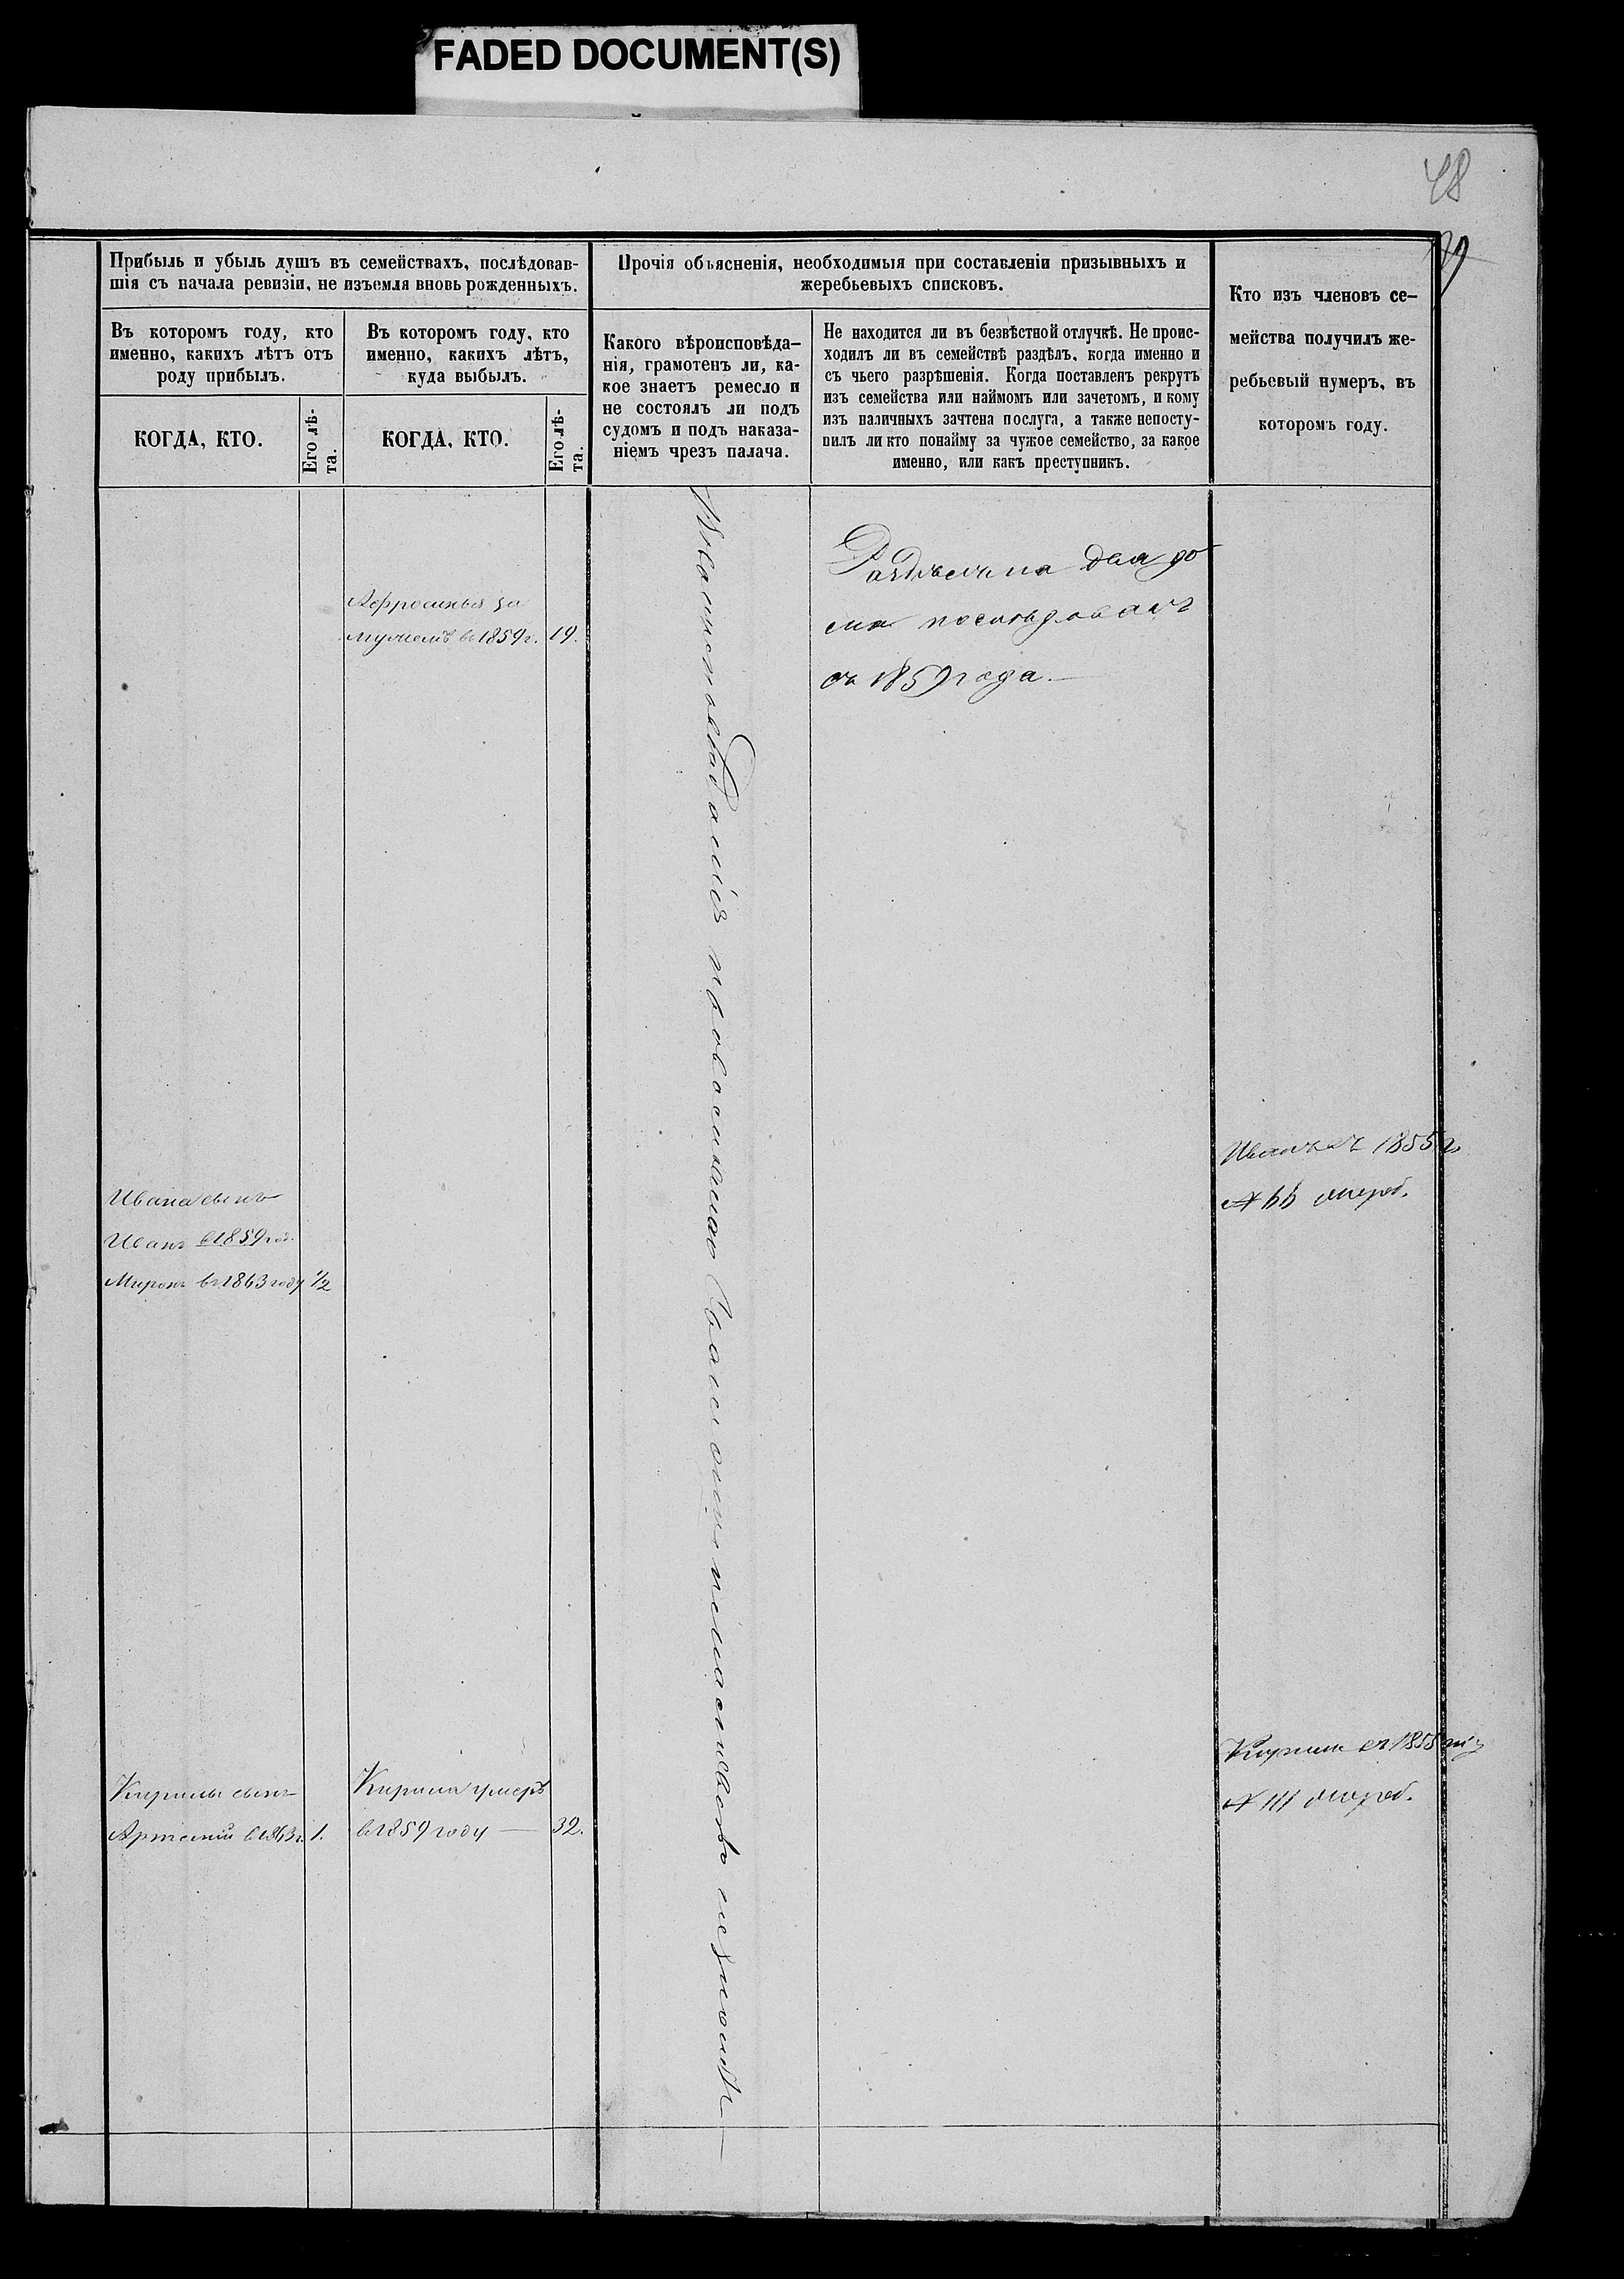 FADED DOCUMENT(S)
48
Прибыль и убыль душъ въ семействахъ, послѣдовав-
шія съ начала ревизіи, не изъемля вновь рожденныхъ.
Въ которомъ году, кто
именно, какихъ лѣтъ отъ
роду прибылъ.
КОГДА, КТО.
Его лѣ-
та.
Въ которомъ году, кто
именно, какихъ лѣтъ,
куда выбылъ.
КОГДА, КТО.
Его лѣ-
та.
Прочія объясненія, необходимыя при составленіи призывныхъ и
жеребьевыхъ списковъ.
Какого вѣроисповѣда-
нія, грамотенъ ли, ка-
кое знаетъ ремесло и
не состоялъ ли подъ
судомъ и подъ наказа-
ніемъ чрезъ палача.
Не находится ли въ безвѣстной отлучкѣ. Не проис-
ходилъ ли въ семействѣ раздѣлъ, когда именно и
съ чьего разрѣшенія. Когда поставленъ рекрутъ
изъ семейства или наймомъ или зачетомъ, и кому
изъ наличныхъ зачтена послуга, а также непосту-
пилъ ли кто понайму за чужое семейство, за какое
именно, или какъ преступникъ.
Кто изъ членовъ се-
мейства получилъ же-
ребьевый нумеръ, въ
которомъ году.
Афросинья за
мужемъ въ 1859 г. 19.
Раздѣлъ на два до
ма послѣдовалъ
съ 1859 года.
Вѣроисповѣданія православнаго
Иванъ въ 1855 г.
№ 66 жереб.
Ивана сынъ
Иванъ в 1859 год.
Миронъ въ 1863 году 1/2
Кирила въ 1855
№ 111 жереб.
Кирилы сынъ
Артемій въ 1863 г. 1.
Кирила умеръ
въ 1859 году — 32.